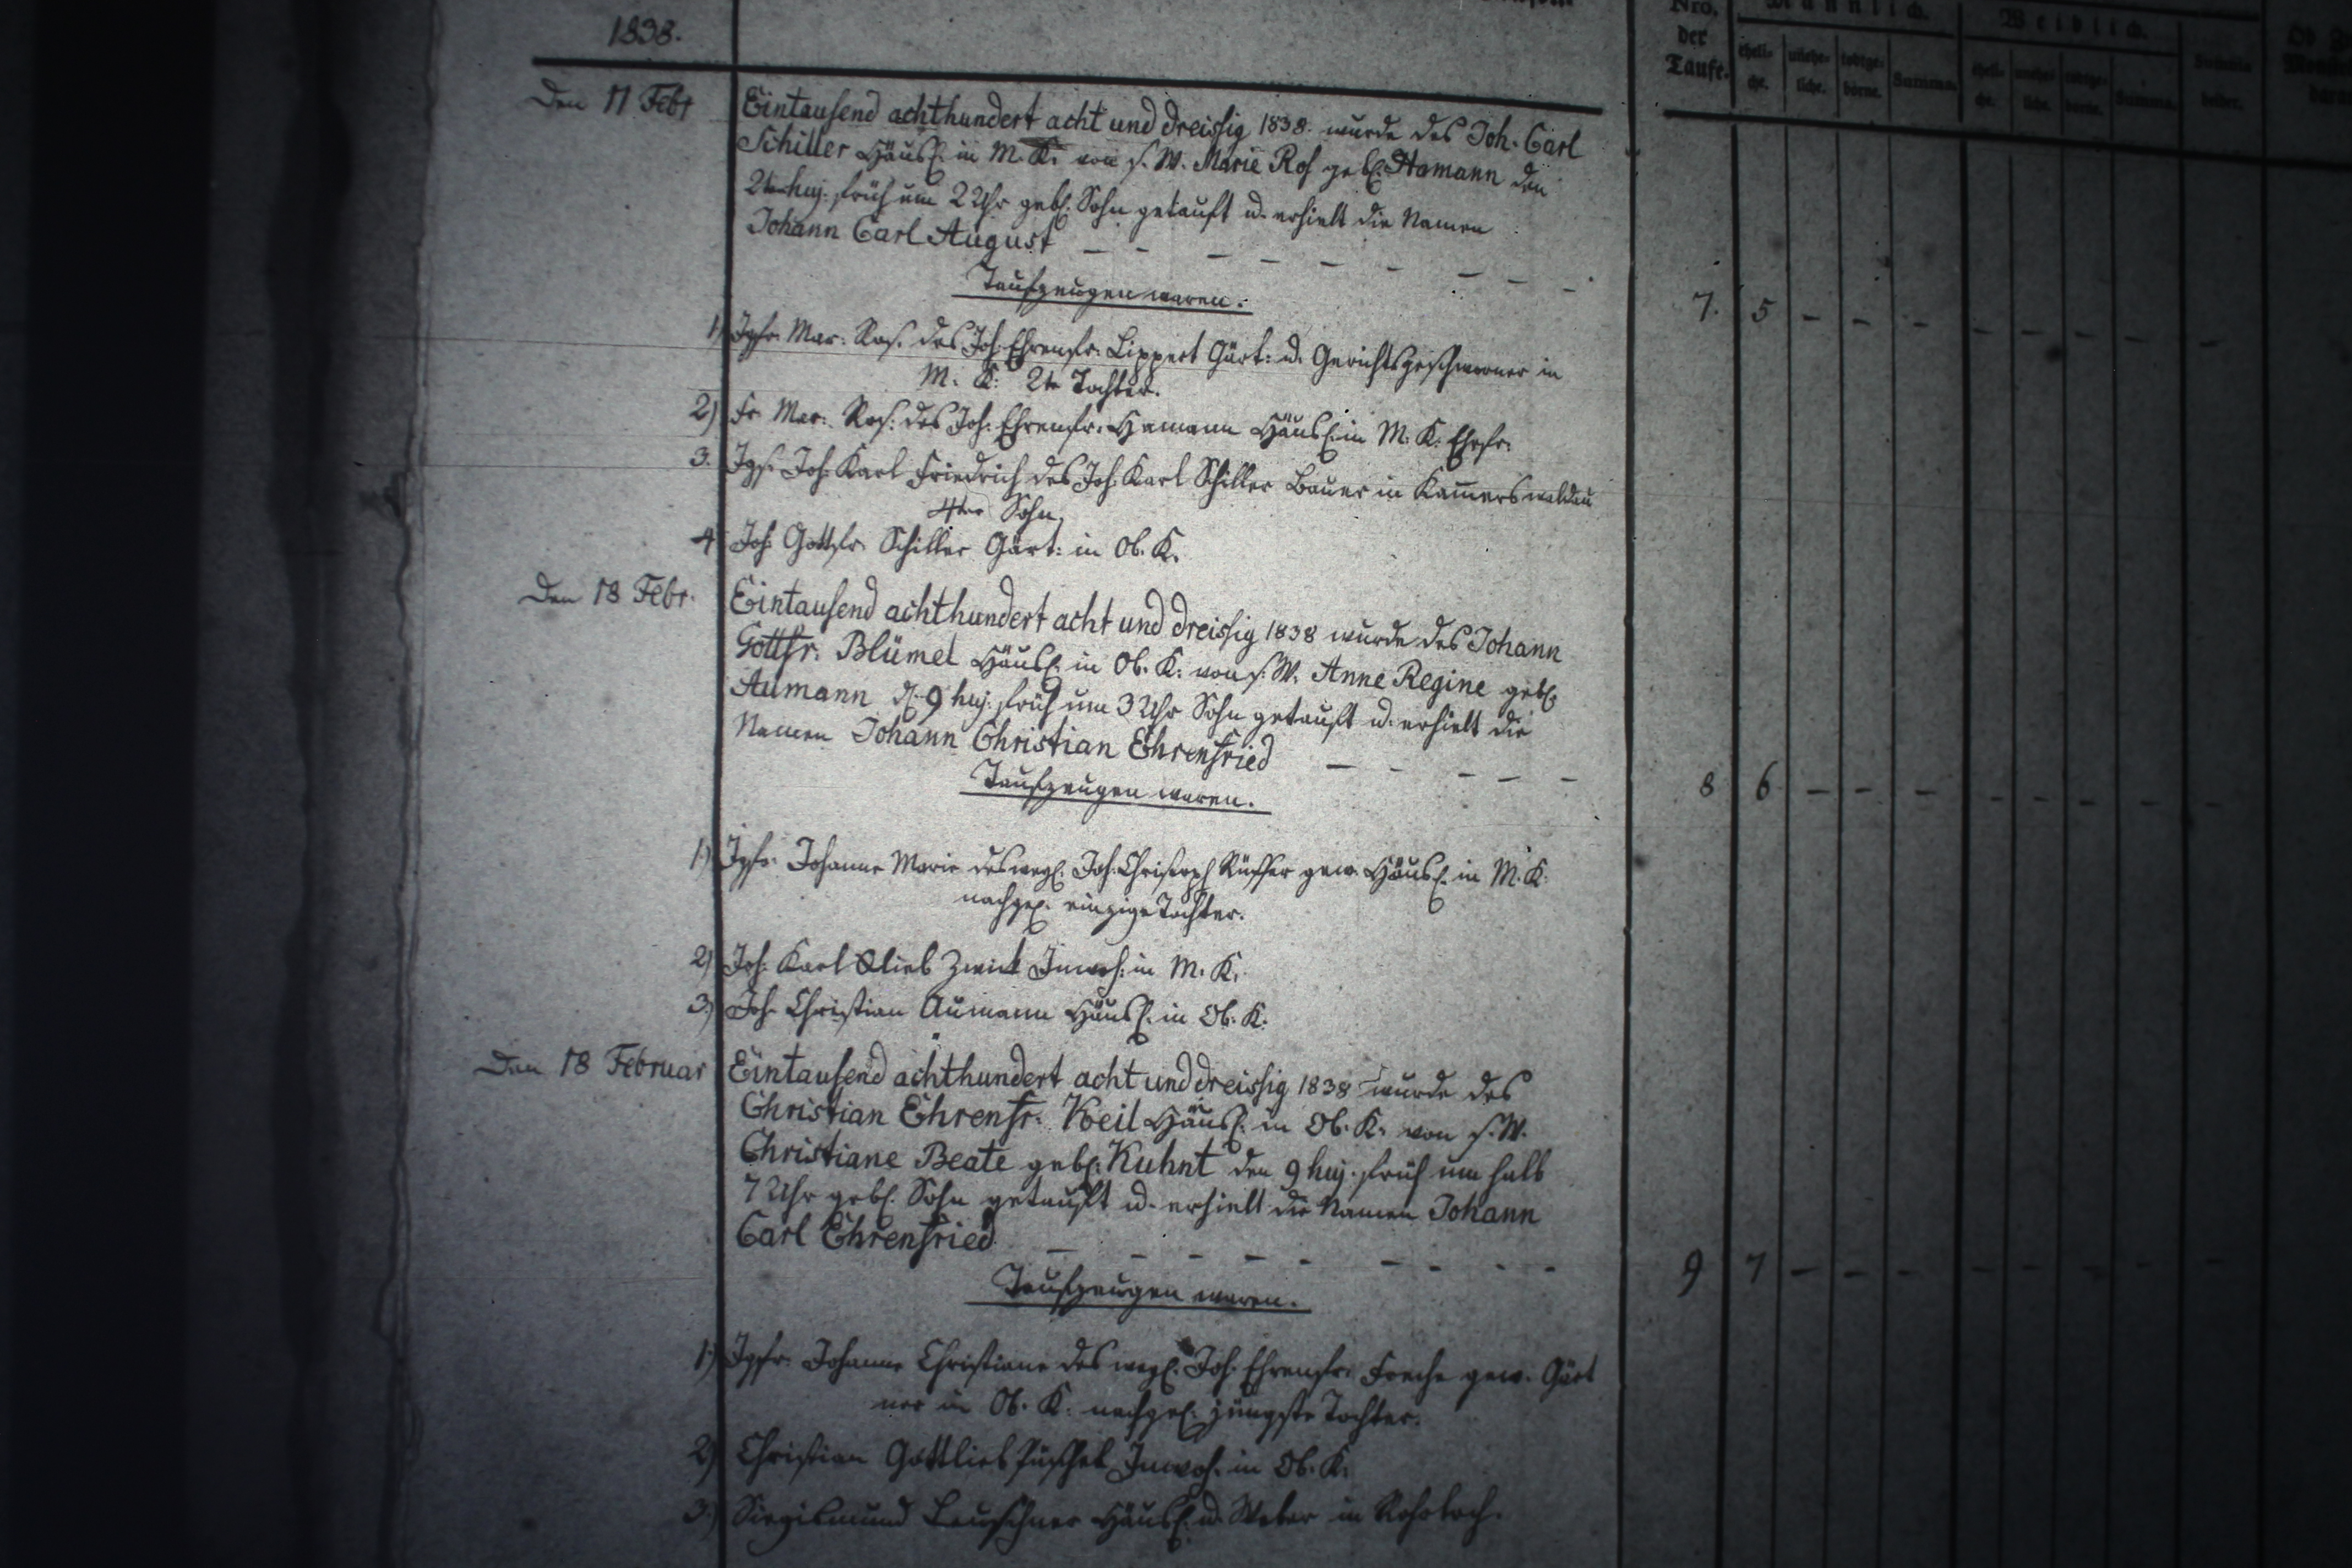 1838.
Nro. der Taufe.
Männlich.
eheli-che. unehe-liche. todtge-borne. Summa.
Weiblich.
eheli-che. unehe-liche. todtge-borne. Summa.
Summa beider.
Den 11 Febr Eintausend achthundert acht und dreissig 1838. wurde des Joh. Carl
Schiller Häusl. in M. K. von s. W. Marie Ros gebl. Hamann den
2ten huj. früh um 2 Uhr gebl. Sohn getauft u. erhielt die Namen
Johann Carl August – – – – – – – – –
Taufzeugen waren.
7. 5 – – – – – – – –
1) Jgfr. Mar. Ros. des Joh. Ehrenfr. Lippert Gärt. u. Gerichtsgeschworner in
M. K. 2te Tochter.
2) Fr. Mar. Ros. des Joh. Ehrenfr. Hamann Häusl. in M. K. Ehefr.
3. Jgs. Joh. Karl Friedrich des Joh. Karl Schiller Bauer in Kam̅erswaldau
4ter Sohn
4 Joh. Gottfr. Schiller Gärt. in Ob. K.
Den 18 Febr. Eintausend achthundert acht und dreissig 1838 wurde des Johann
Gottfr. Blümel Häusl. in Ob. K. von s. W. Anne Regine gebl.
Aumann d. 9 huj. früh um 3 Uhr Sohn getauft u. erhielt die
Namen Johann Christian Ehrenfried – – – – –
Taufzeugen waren.
8 6 – – – – – – – –
1) Jgfr. Johanne Marie des wegl. Joh. Christoph Rüffer gew. Häusl. in M. K.
nachgel. einzige Tochter.
2) Joh. Karl Glieb Zwick Inwoh. in M. K.
3) Joh. Christian Aumann Häusl. in Ob. K.
Den 18 Februar Eintausend achthundert acht und dreissig 1838 wurde des
Christian Ehrenfr. Keil Häusl. in Ob. K. von s. W.
Christiane Beate gebl. Kuhnt den 9 huj. früh um halb
7 Uhr gebl. Sohn getauft u. erhielt die Namen Johann
Carl Ehrenfried – – – – – – – –
Taufzeugen waren.
9 7 – – – – – – – –
1) Jgfr. Johanne Christiane des wegl. Joh. Ehrenfr. Feche gew. Gärt
ner in Ob. K. nachgel. jüngste Tochter.
2) Christian Gottlieb Püschel Inwoh. in Ob. K.
3.) Siegismund Leuschner Häusl. u. Weber in Rohrlach.